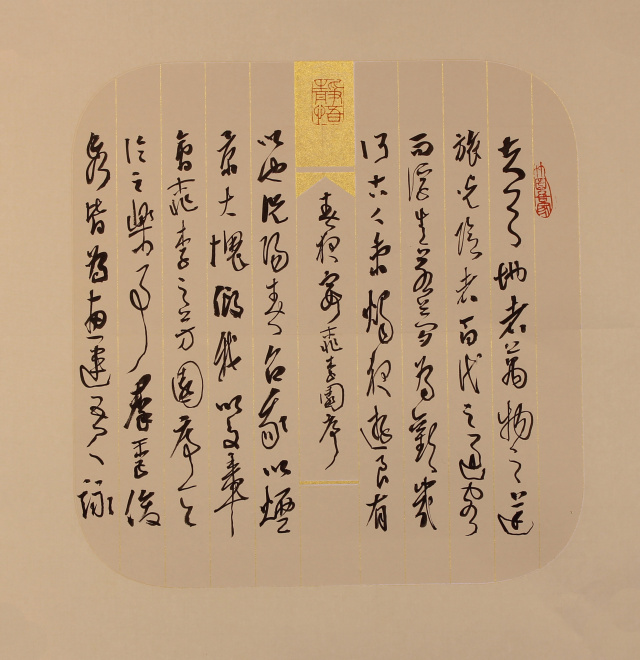 夫天地者萬物之逆
旅光陰者百代之過客
而浮生若夢為歡幾
何古人秉燭夜遊良有
春夜宴桃李園序
以也況陽春召我以煙
景大塊假我以文章
會桃李之芳園序天
倫之樂事群季俊
秀皆為惠連吾人詠